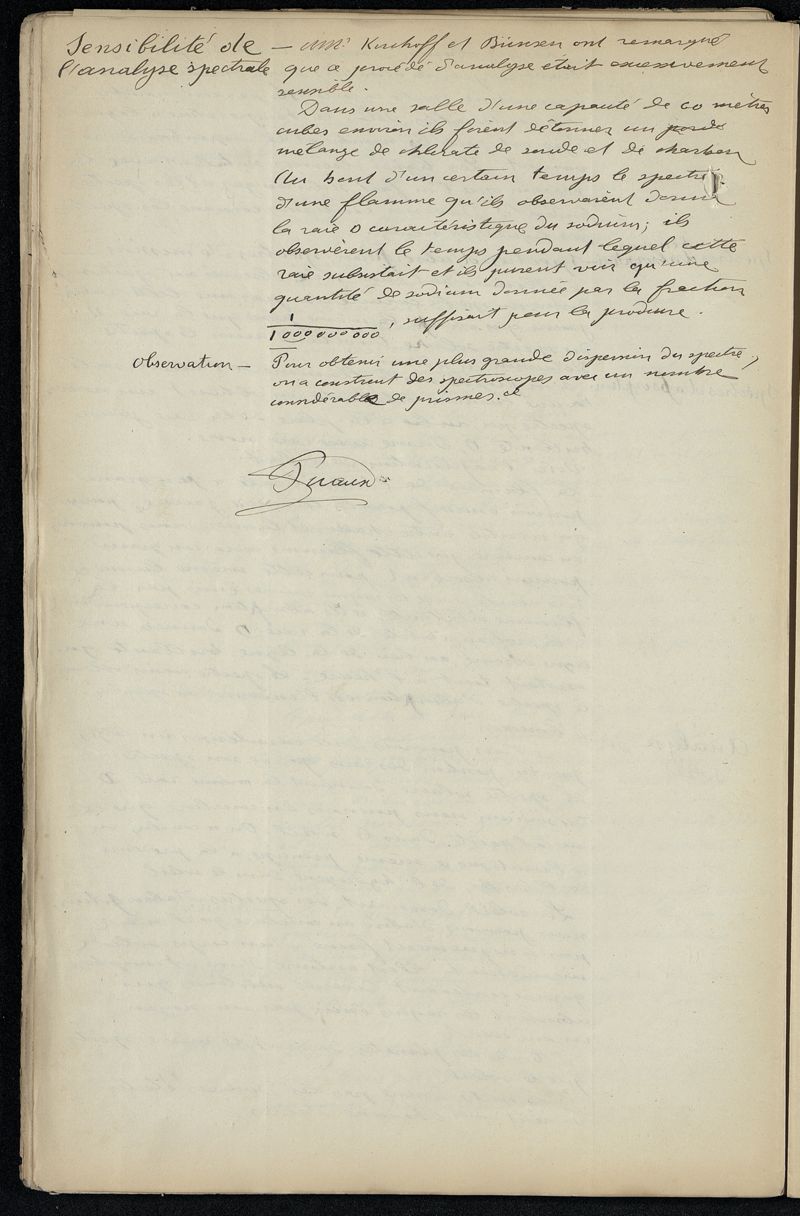 Sensibilité de — MMrs Kirchoff et Bunsen ont remarqué
l'analyse spectrale que ce procédé d'analyse était excessivement
sensible.
Dans une salle d'une capacité de 60 mètres
cubes environ ils firent détonner un
mélange de chlorate de soude et de charbon
Au bout d'un certain temps le spectre
d'une flamme qu'ils observaient donna
la raie D caractéristique du sodium; ils
observèrent le temps pendant lequel cette
raie subsistait et ils purent voir qu'une
quantité de sodium donnée par la fraction
1
1000000000, suffisait pour la produire.
Observation — Pour obtenir une plus grande dispersion du spectre,
on a construit des spectroscopes avec un nombre
considérable de prismes.